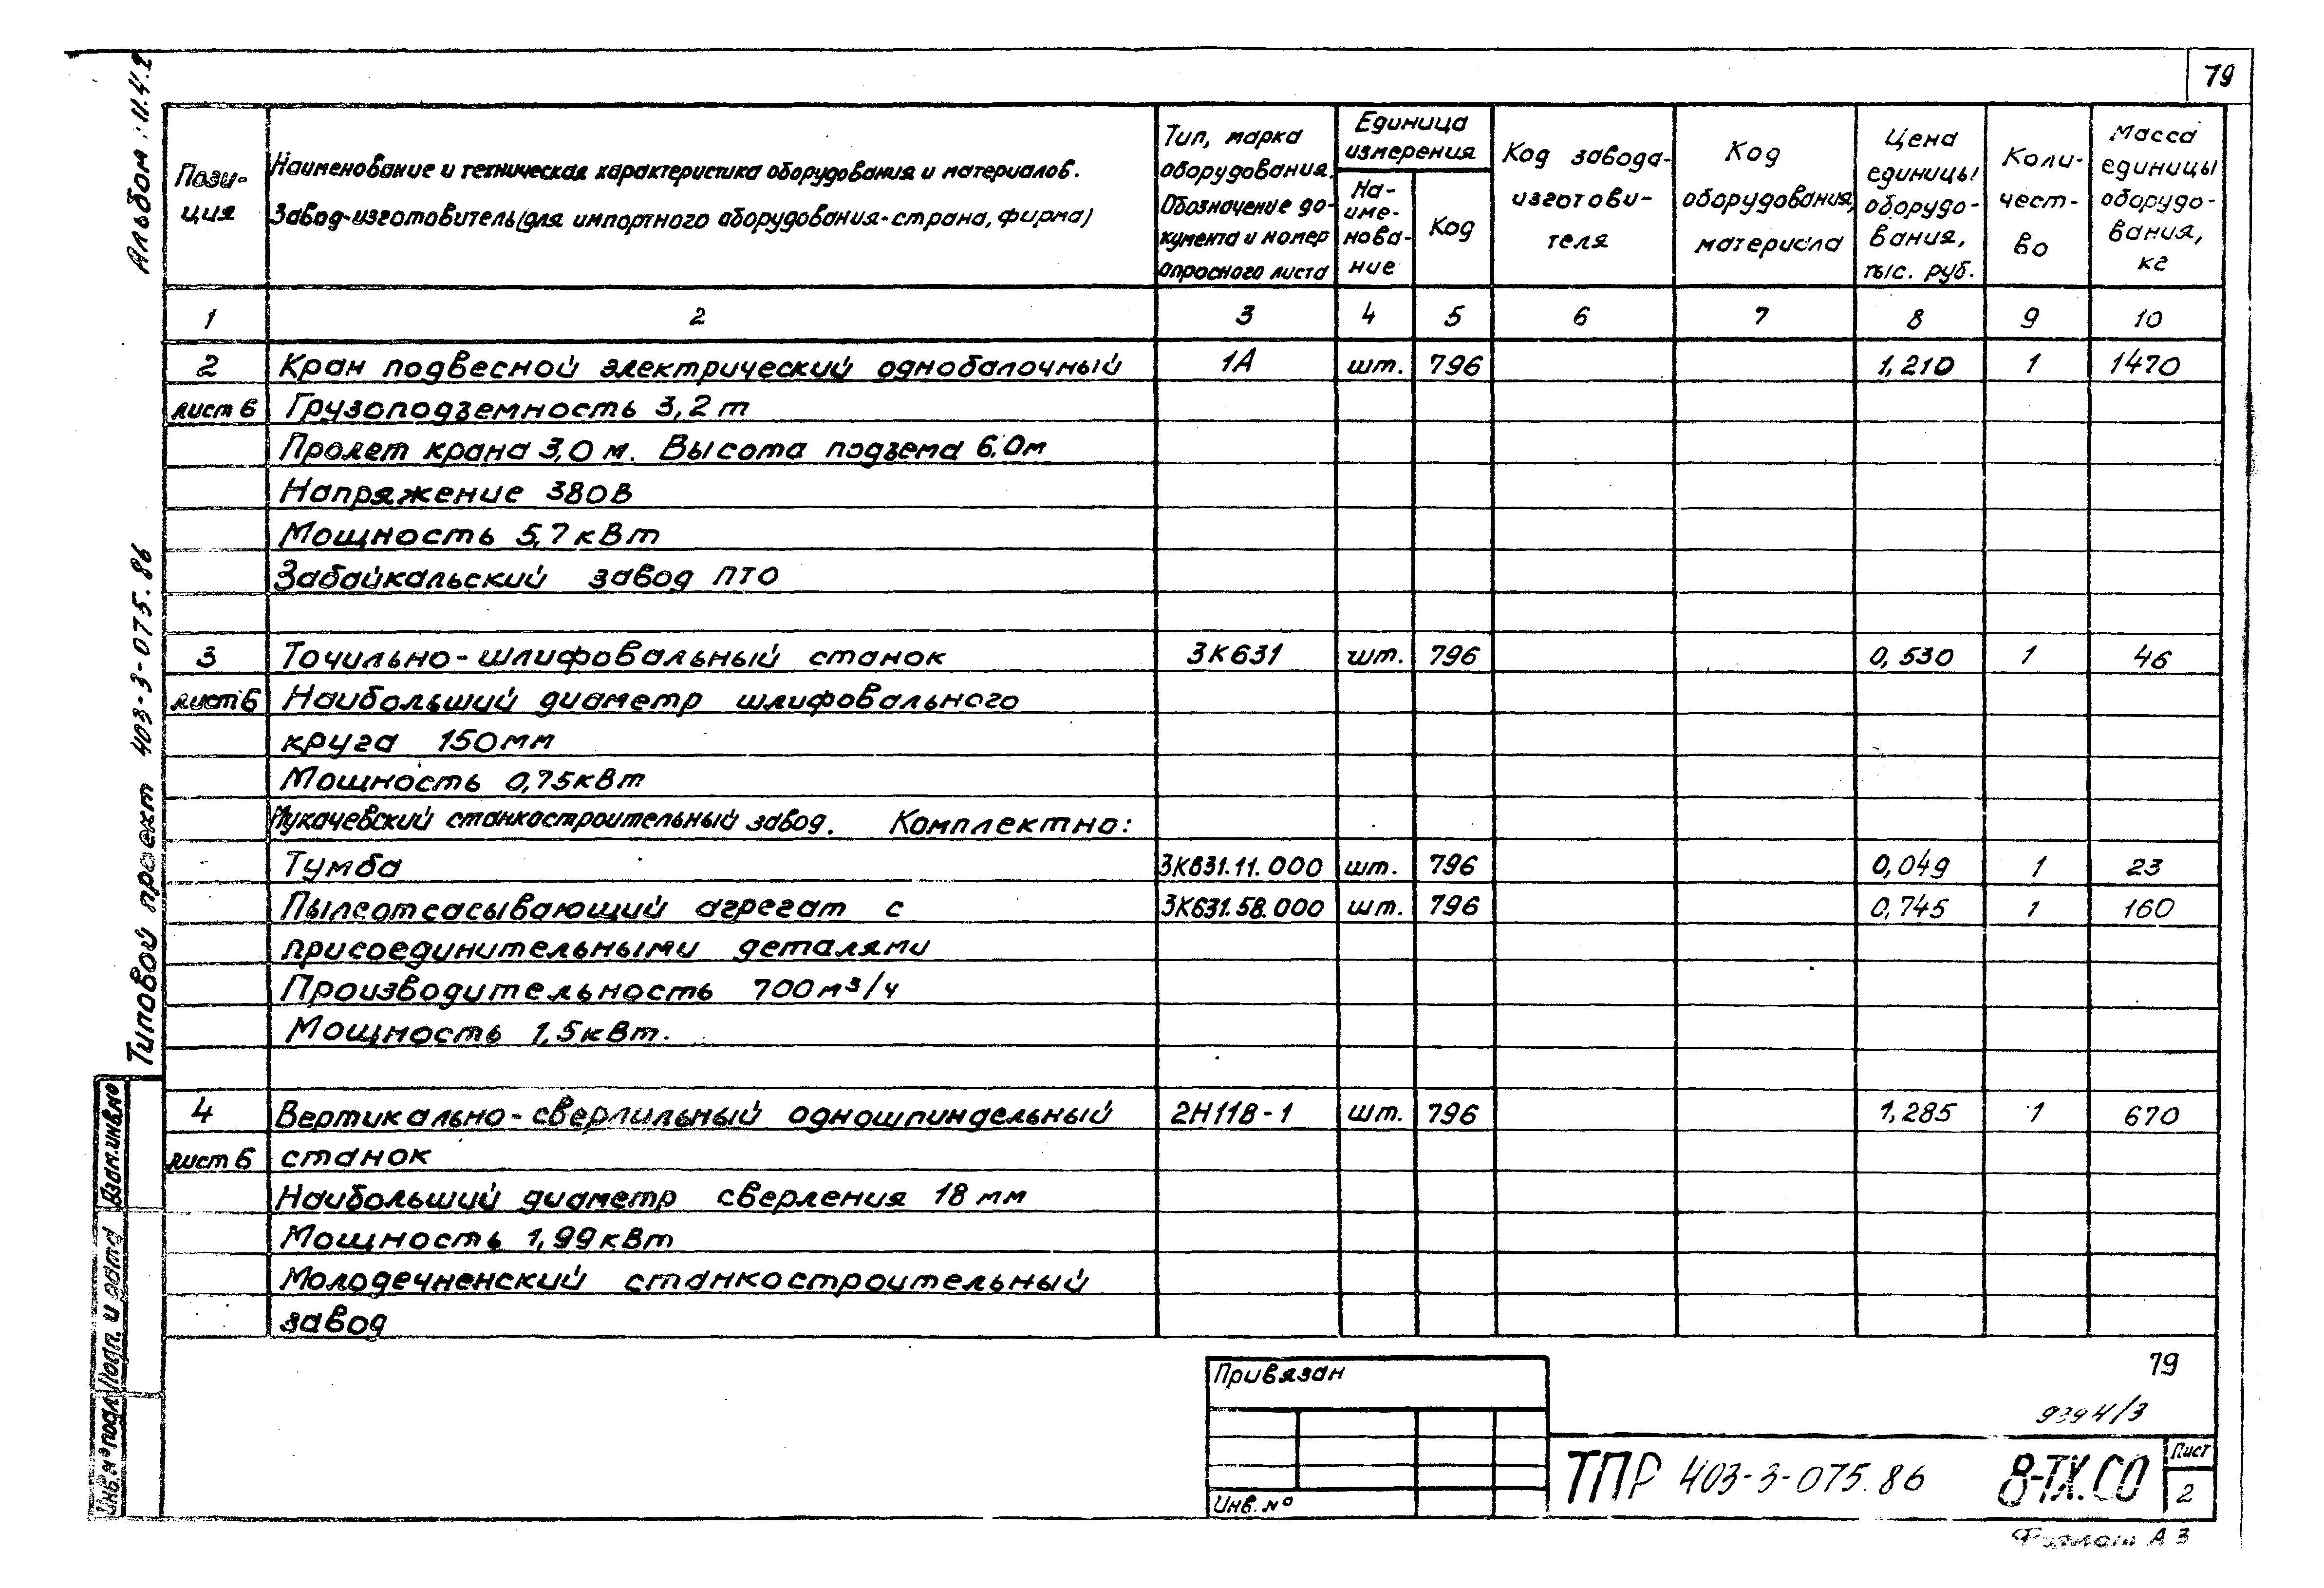 79
Альбом 11.4.2
Типовой проект 403-3-075.86
Пози-
ция
Наименование и техническая характеристика оборудования и материалов.
Завод-изготовитель (для импортного оборудования-страна, фирма)
Тип, марка
оборудования.
Обозначение до-
кумента и номер
опросного листа
Единица
измерения
На-
име-
нова-
ние
Код
Код завода-
изготови-
теля
Код
оборудования,
материала
Цена
единицы
оборудо-
вания,
тыс. руб.
Коли-
чест-
во
Масса
единицы
оборудо-
вания,
кг
1 2 3 4 5 6 7 8 9 10
2 Кран подвесной электрический однобалочный 1А шт. 796 1,210 1 1470
лист 6 Грузоподъемность 3,2 т
Пролет крана 3,0 м. Высота подъема 6,0м
Напряжение 380В
Мощность 5,7 кВт
Забайкальский завод ПТО
3 Точильно-шлифовальный станок 3К631 шт. 796 0,530 1 46
лист 6 Наибольший диаметр шлифовального
круга 150мм
Мощность 0,75кВт
Мукачевский станкостроительный завод. Комплектно:
Тумба 3К631.11.000 шт. 796 0,049 1 23
Пылеотсасывающий агрегат с 3К631.58.000 шт. 796 0,745 1 160
присоединительными деталями
Производительность 700м³/ч
Мощность 1,5кВт.
4 Вертикально-сверлильный одношпиндельный 2Н118-1 шт. 796 1,285 1 670
лист 6 станок
Наибольший диаметр сверления 18 мм
Мощность 1,99кВт
Молодечненский станкостроительный
завод
Взам.инв.№
Подп. и дата
Инв.№ подл.
Привязан
Инв.№
79
9394/3
ТПР 403-3-075.86 8-ТХ.СО
Лист
2
Формат А3